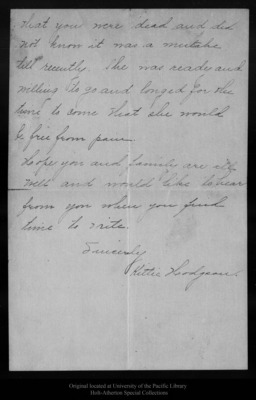 that you were dead and did
not know it was a mistake
till recently. She was ready and
willing to go and longed for the
time to come that she would
be free from pain.
Hope you and family are all
well and would like to hear
from you when you find
time to write.
Sincerely
Kittie Hodgson
Original located at University of the Pacific Library
Holt-Atherton Special Collections